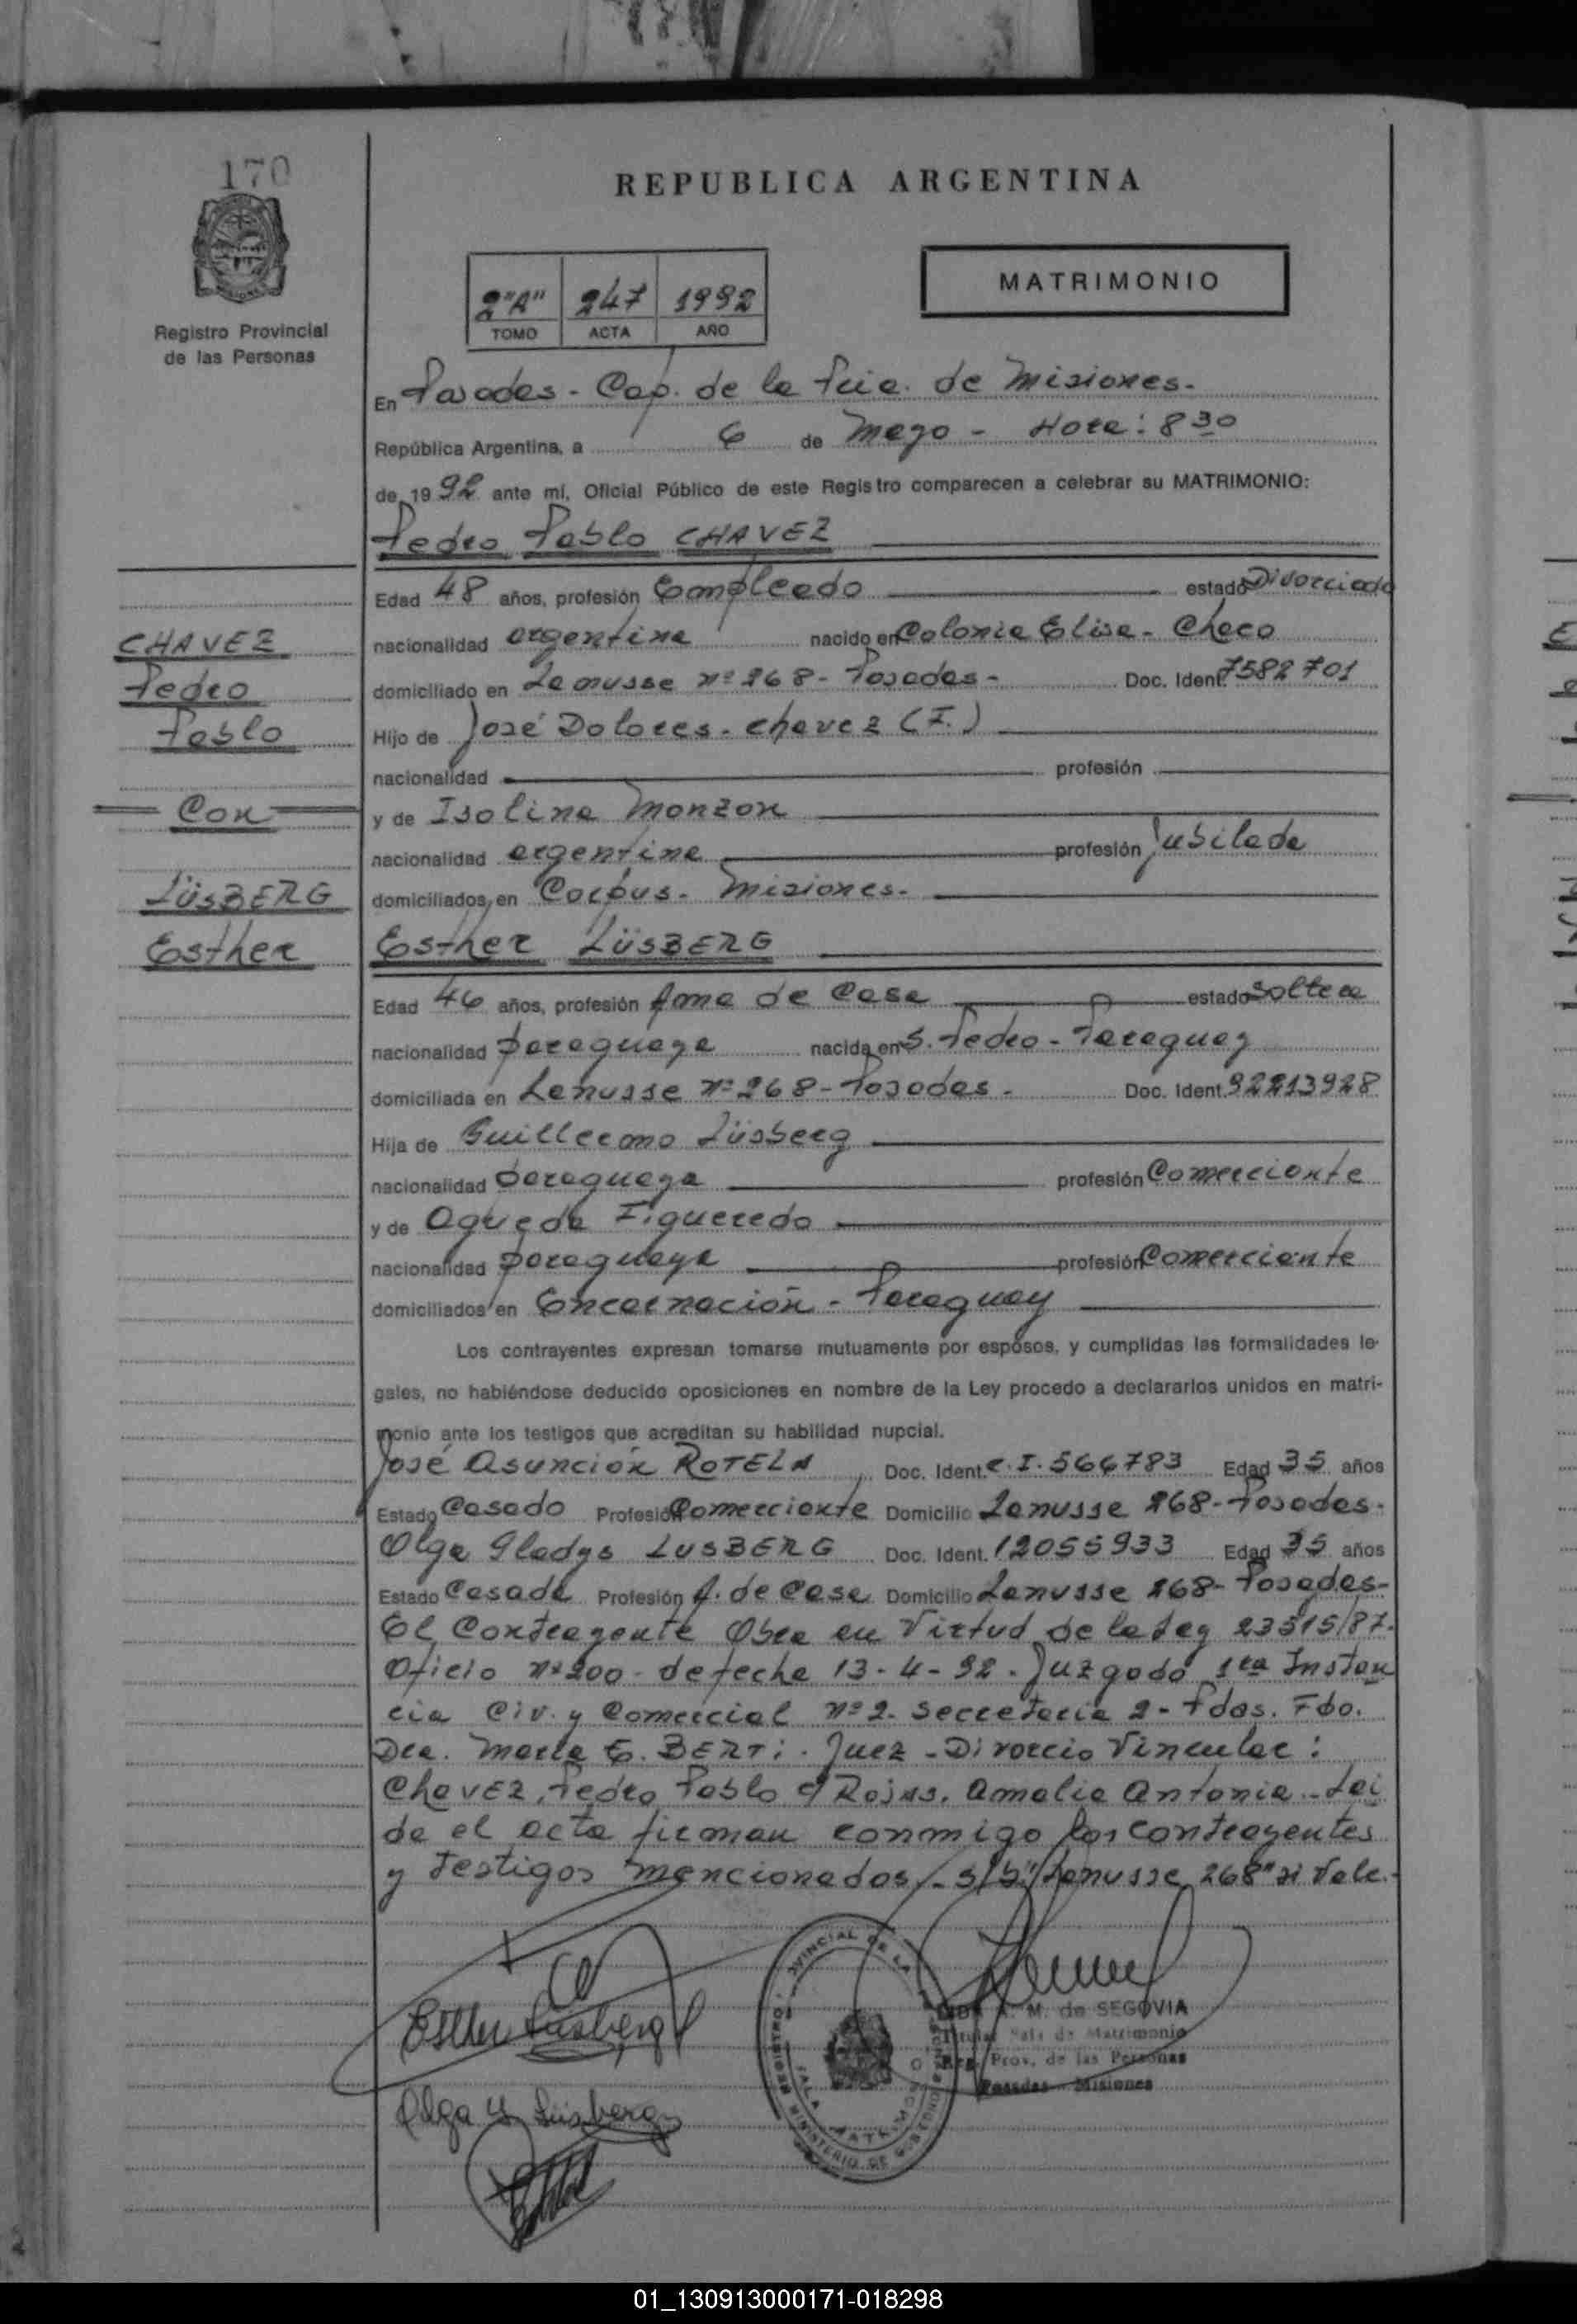 170
REPUBLICA ARGENTINA
2"A" 247 1992
TOMO ACTA AÑO
MATRIMONIO
Registro Provincial
de las Personas
En Posadas - Cap. de la Pcia. de Misiones.
República Argentina, a 6 de Mayo - Hora: 8 30
de 1992 ante mí, Oficial Público de este Registro comparecen a celebrar su MATRIMONIO:
Pedro Pablo CHAVEZ
Edad 48 años, profesión Empleado estado Divorciado
nacionalidad argentina nacido en Colonia Elisa - Chaco
domiciliado en Lanusse Nº 268 - Posadas - Doc. Ident. 7582701
Hijo de José Dolores Chavez (F.)
nacionalidad profesión
y de Isolina Monzon
nacionalidad argentina profesión Jubilada
domiciliados en Corpus - Misiones.
CHAVEZ
Pedro
Pablo
Con
LÜSBERG
Esther
Esther LÜSBERG
Edad 46 años, profesión Ama de Casa estado Soltera
nacionalidad paraguaya nacida en S. Pedro - Paraguay
domiciliada en Lanusse Nº 268 - Posadas - Doc. Ident. 92213928
Hija de Guillermo Lüsberg
nacionalidad paraguaya profesión Comerciante
y de Agueda Figueredo
nacionalidad paraguaya profesión Comerciante
domiciliados en Encarnación - Paraguay
Los contrayentes expresan tomarse mutuamente por esposos, y cumplidas las formalidades le-
gales, no habiéndose deducido oposiciones en nombre de la Ley procedo a declararlos unidos en matri-
monio ante los testigos que acreditan su habilidad nupcial.
José Asunción ROTELA Doc. Ident. C.I. 566783 Edad 35 años
Estado Casado Profesión Comerciante Domicilio Lanusse 268 - Posadas.
Olga Gladys LUSBERG Doc. Ident. 12055933 Edad 35 años
Estado Casada Profesión A. de Casa Domicilio Lanusse 268 - Posadas-
El Contrayente Obra en Virtud de la Ley 23515/87.
Oficio Nº 200 - de fecha 13-4-92. Juzgado 1ra Instan
cia Civ. y Comercial Nº 2. Secretaria 2 - Pdas. Fdo.
Dra. Marta E. BERTI. Juez - Divorcio Vincular:
Chavez, Pedro Pablo c/ Rojas, Amalia Antonia - Lei
da el acta firman conmigo los contrayentes
y testigos mencionados. - S/b "Lanusse 268" si Vale.-
Esther Lüsberg
Olga G. Lüsberg
M. de SEGOVIA
Titular Sala de Matrimonio
Reg. Prov. de las Personas
Posadas - Misiones
01_130913000171-018298